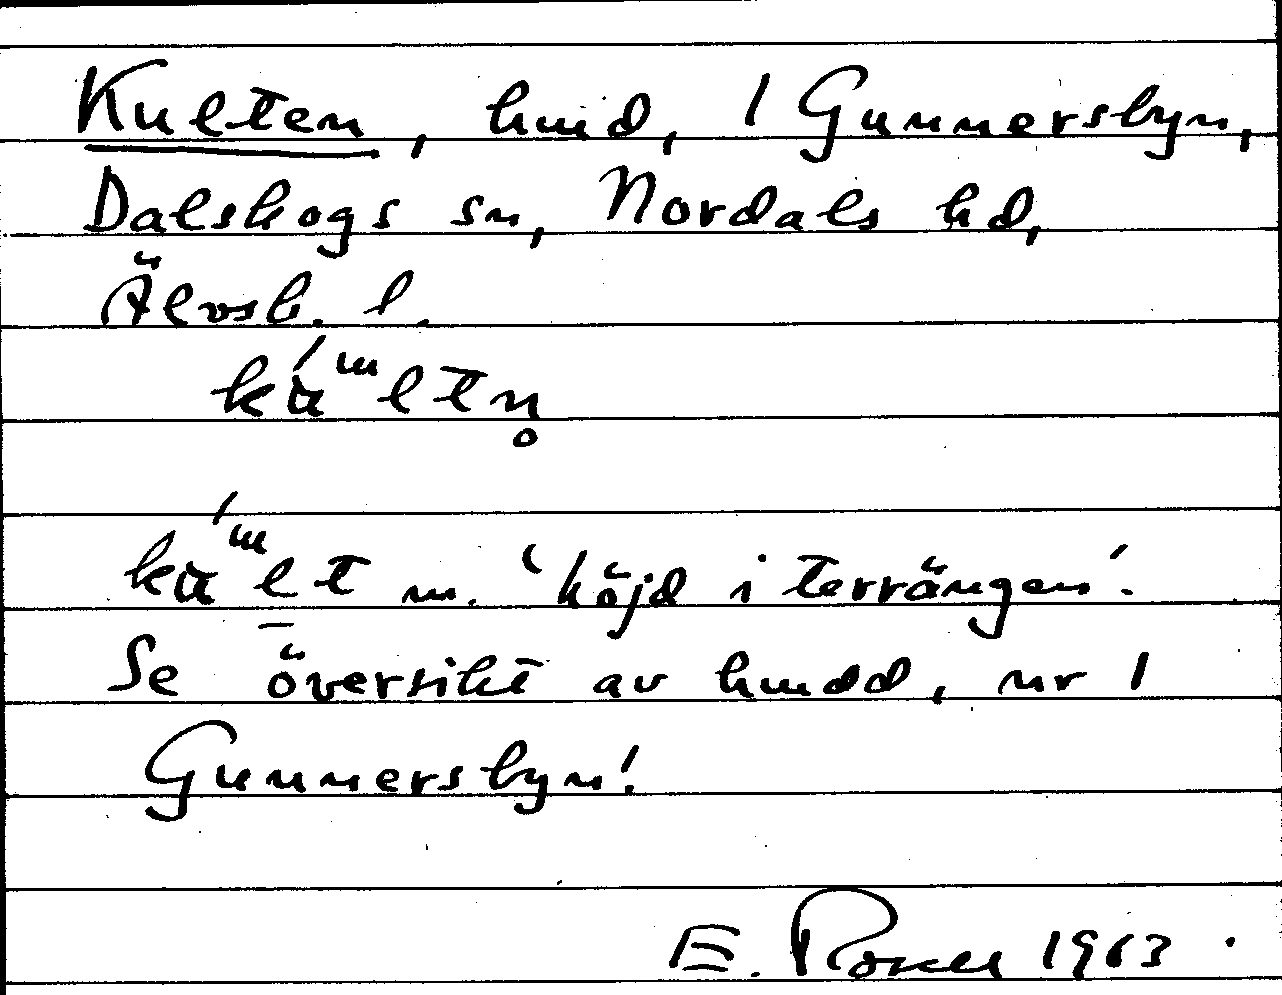 Kulten, hmd, 1 Gunnersbyn,
Dalskogs sn, Nordals hd,
Älvsb. l.
m. 'höjd i terrängen'.
Se översikt av hmdd, nr 1
Gunnersbyn!
E. 1963